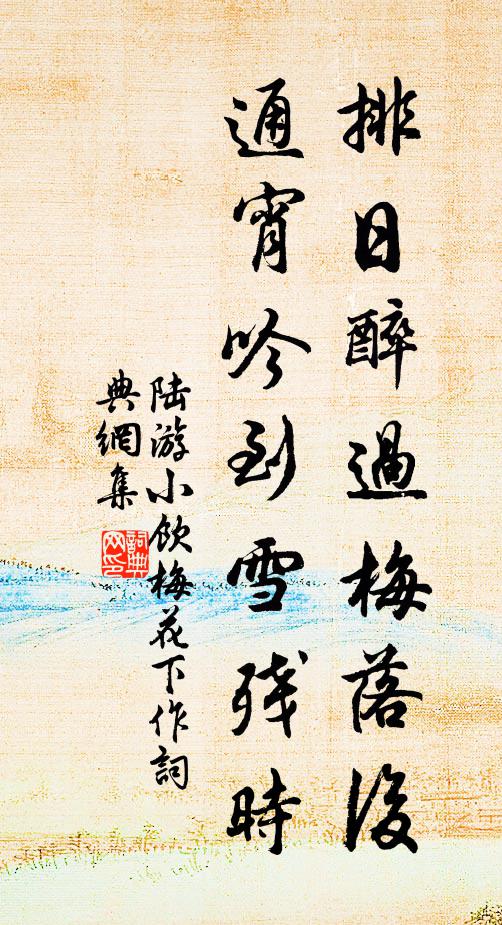 排日醉過梅落後
通宵吟到雪残時
陆游小飲梅花下作詞
典網集
詞典
网印